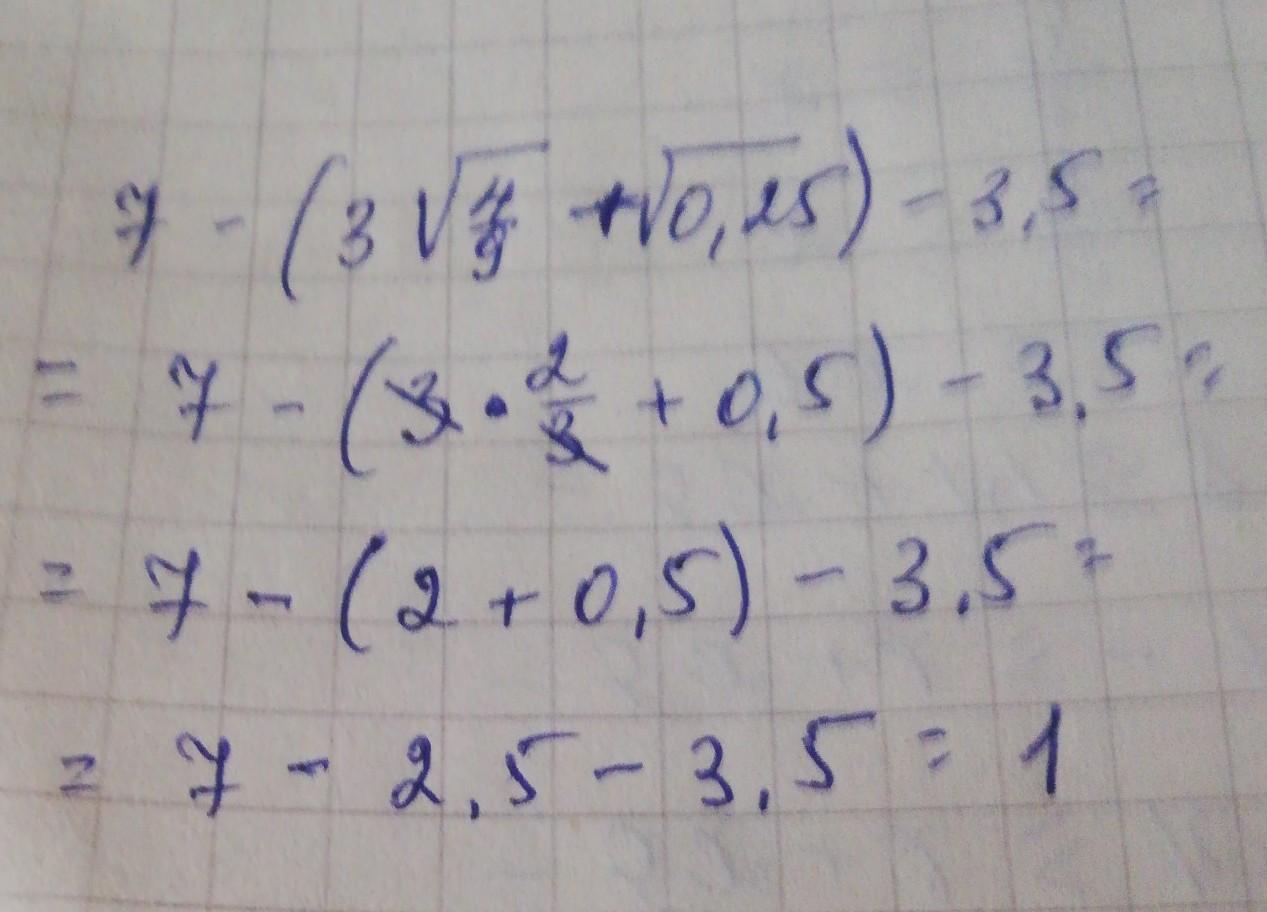 7 - (3√4/9 + √0,25) - 3,5 =
= 7 - (3 · 2/3 + 0,5) - 3,5 =
= 7 - (2 + 0,5) - 3,5 =
= 7 - 2,5 - 3,5 = 1